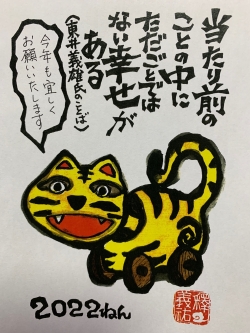 当たり前の
ことの中に
ただごとでは
ない幸せが
ある
（東井義雄氏のことば）
今年も宜しく
お願いいたします
2022ねん
澤
義祐